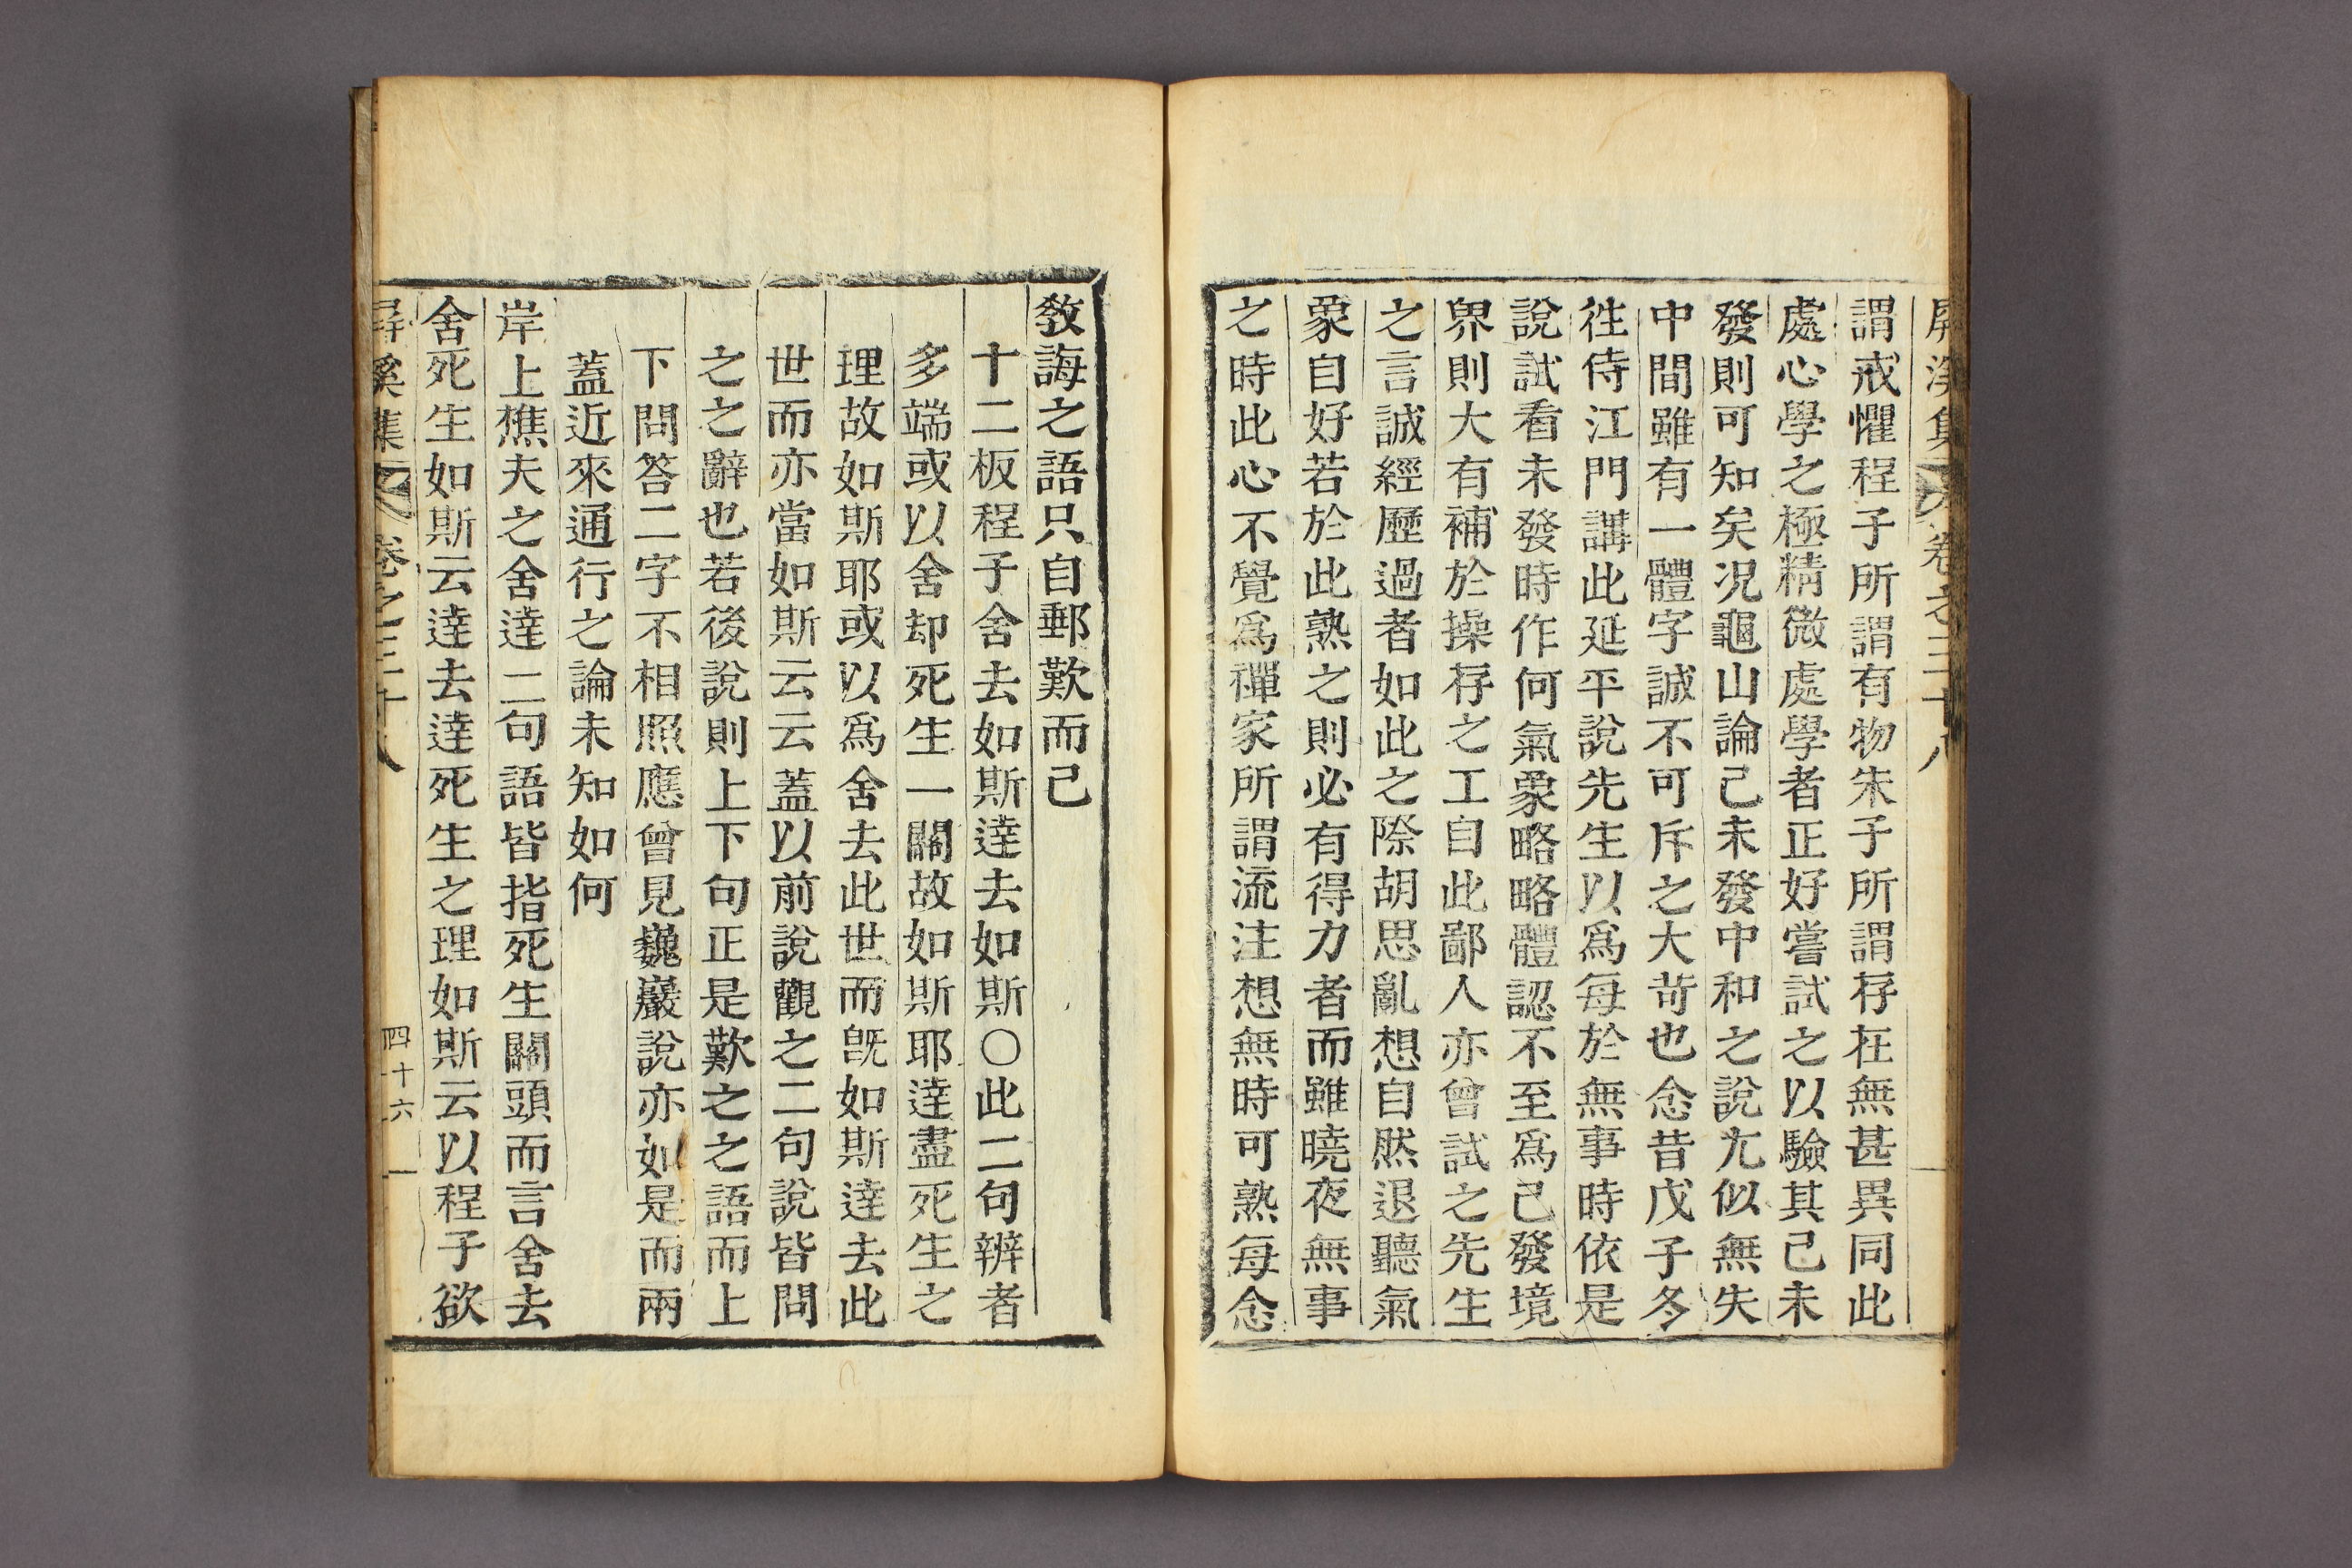 屛溪集 卷之三十八
謂戒懼程子所謂有物朱子所謂存在無甚異同此
處心學之極精微處學者正好嘗試之以驗其已未
發則可知矣况龜山論己未發中和之說尤似無失
中間雖有一體字誠不可斥之大苛也念昔戊子冬
往侍江門講此延平說先生以爲每於無事時依是
說試看未發時作何氣象略略體認不至爲己發境
界則大有補於操存之工自此鄙人亦曾試之先生
之言誠經歷過者如此之際胡思亂想自然退聽氣
象自好若於此熟之則必有得力者而雖曉夜無事
之時此心不覺爲禪家所謂流注想無時可熟每念
敎誨之語只自郵歎而己
十二板程子舍去如斯達去如斯○此二句辨者
多端或以舍却死生一關故如斯耶達盡死生之
理故如斯耶或以爲舍去此世而旣如斯達去此
世而亦當如斯云云蓋以前說觀之二句說皆問
之之辭也若後說則上下句正是歎之之語而上
下問答二字不相照應曾見巍巖說亦如是而兩
蓋近來通行之論未知如何
岸上樵夫之舍達二句語皆指死生關頭而言舍去
舍死生如斯云達去達死生之理如斯云以程子欲
屛溪集 卷之三十八 四十六